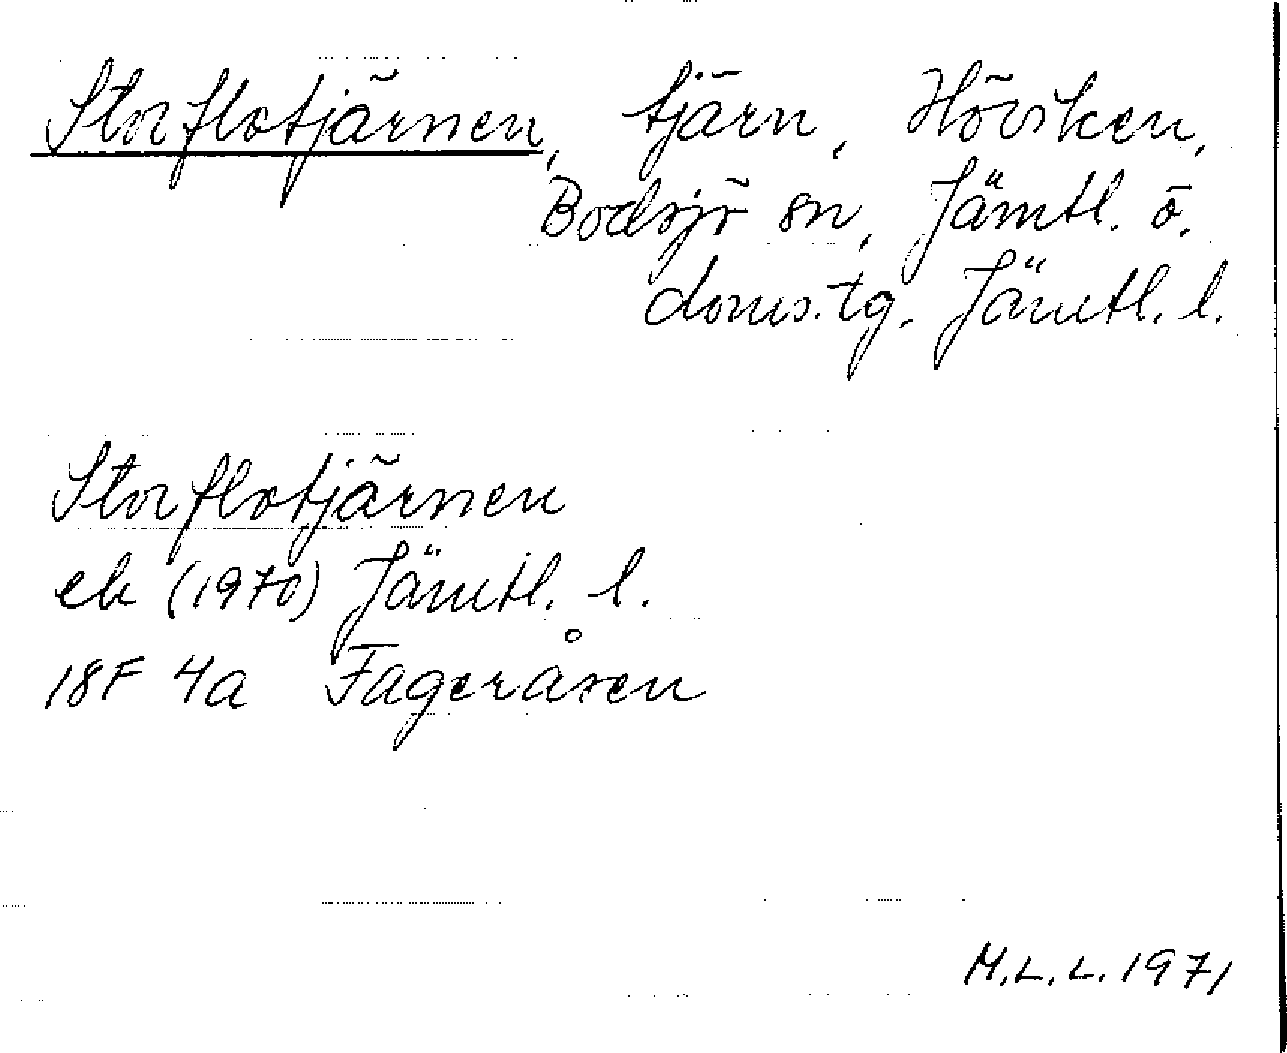 Storflotjärnen, tjärn, Höviken,
Bodsjö sn, Jämtl. ö.
doms.tg. Jämtl. l.
Storflotjärnen
ek (1970) Jämtl. l.
18F 4a Fageråsen
M.L.L. 1971